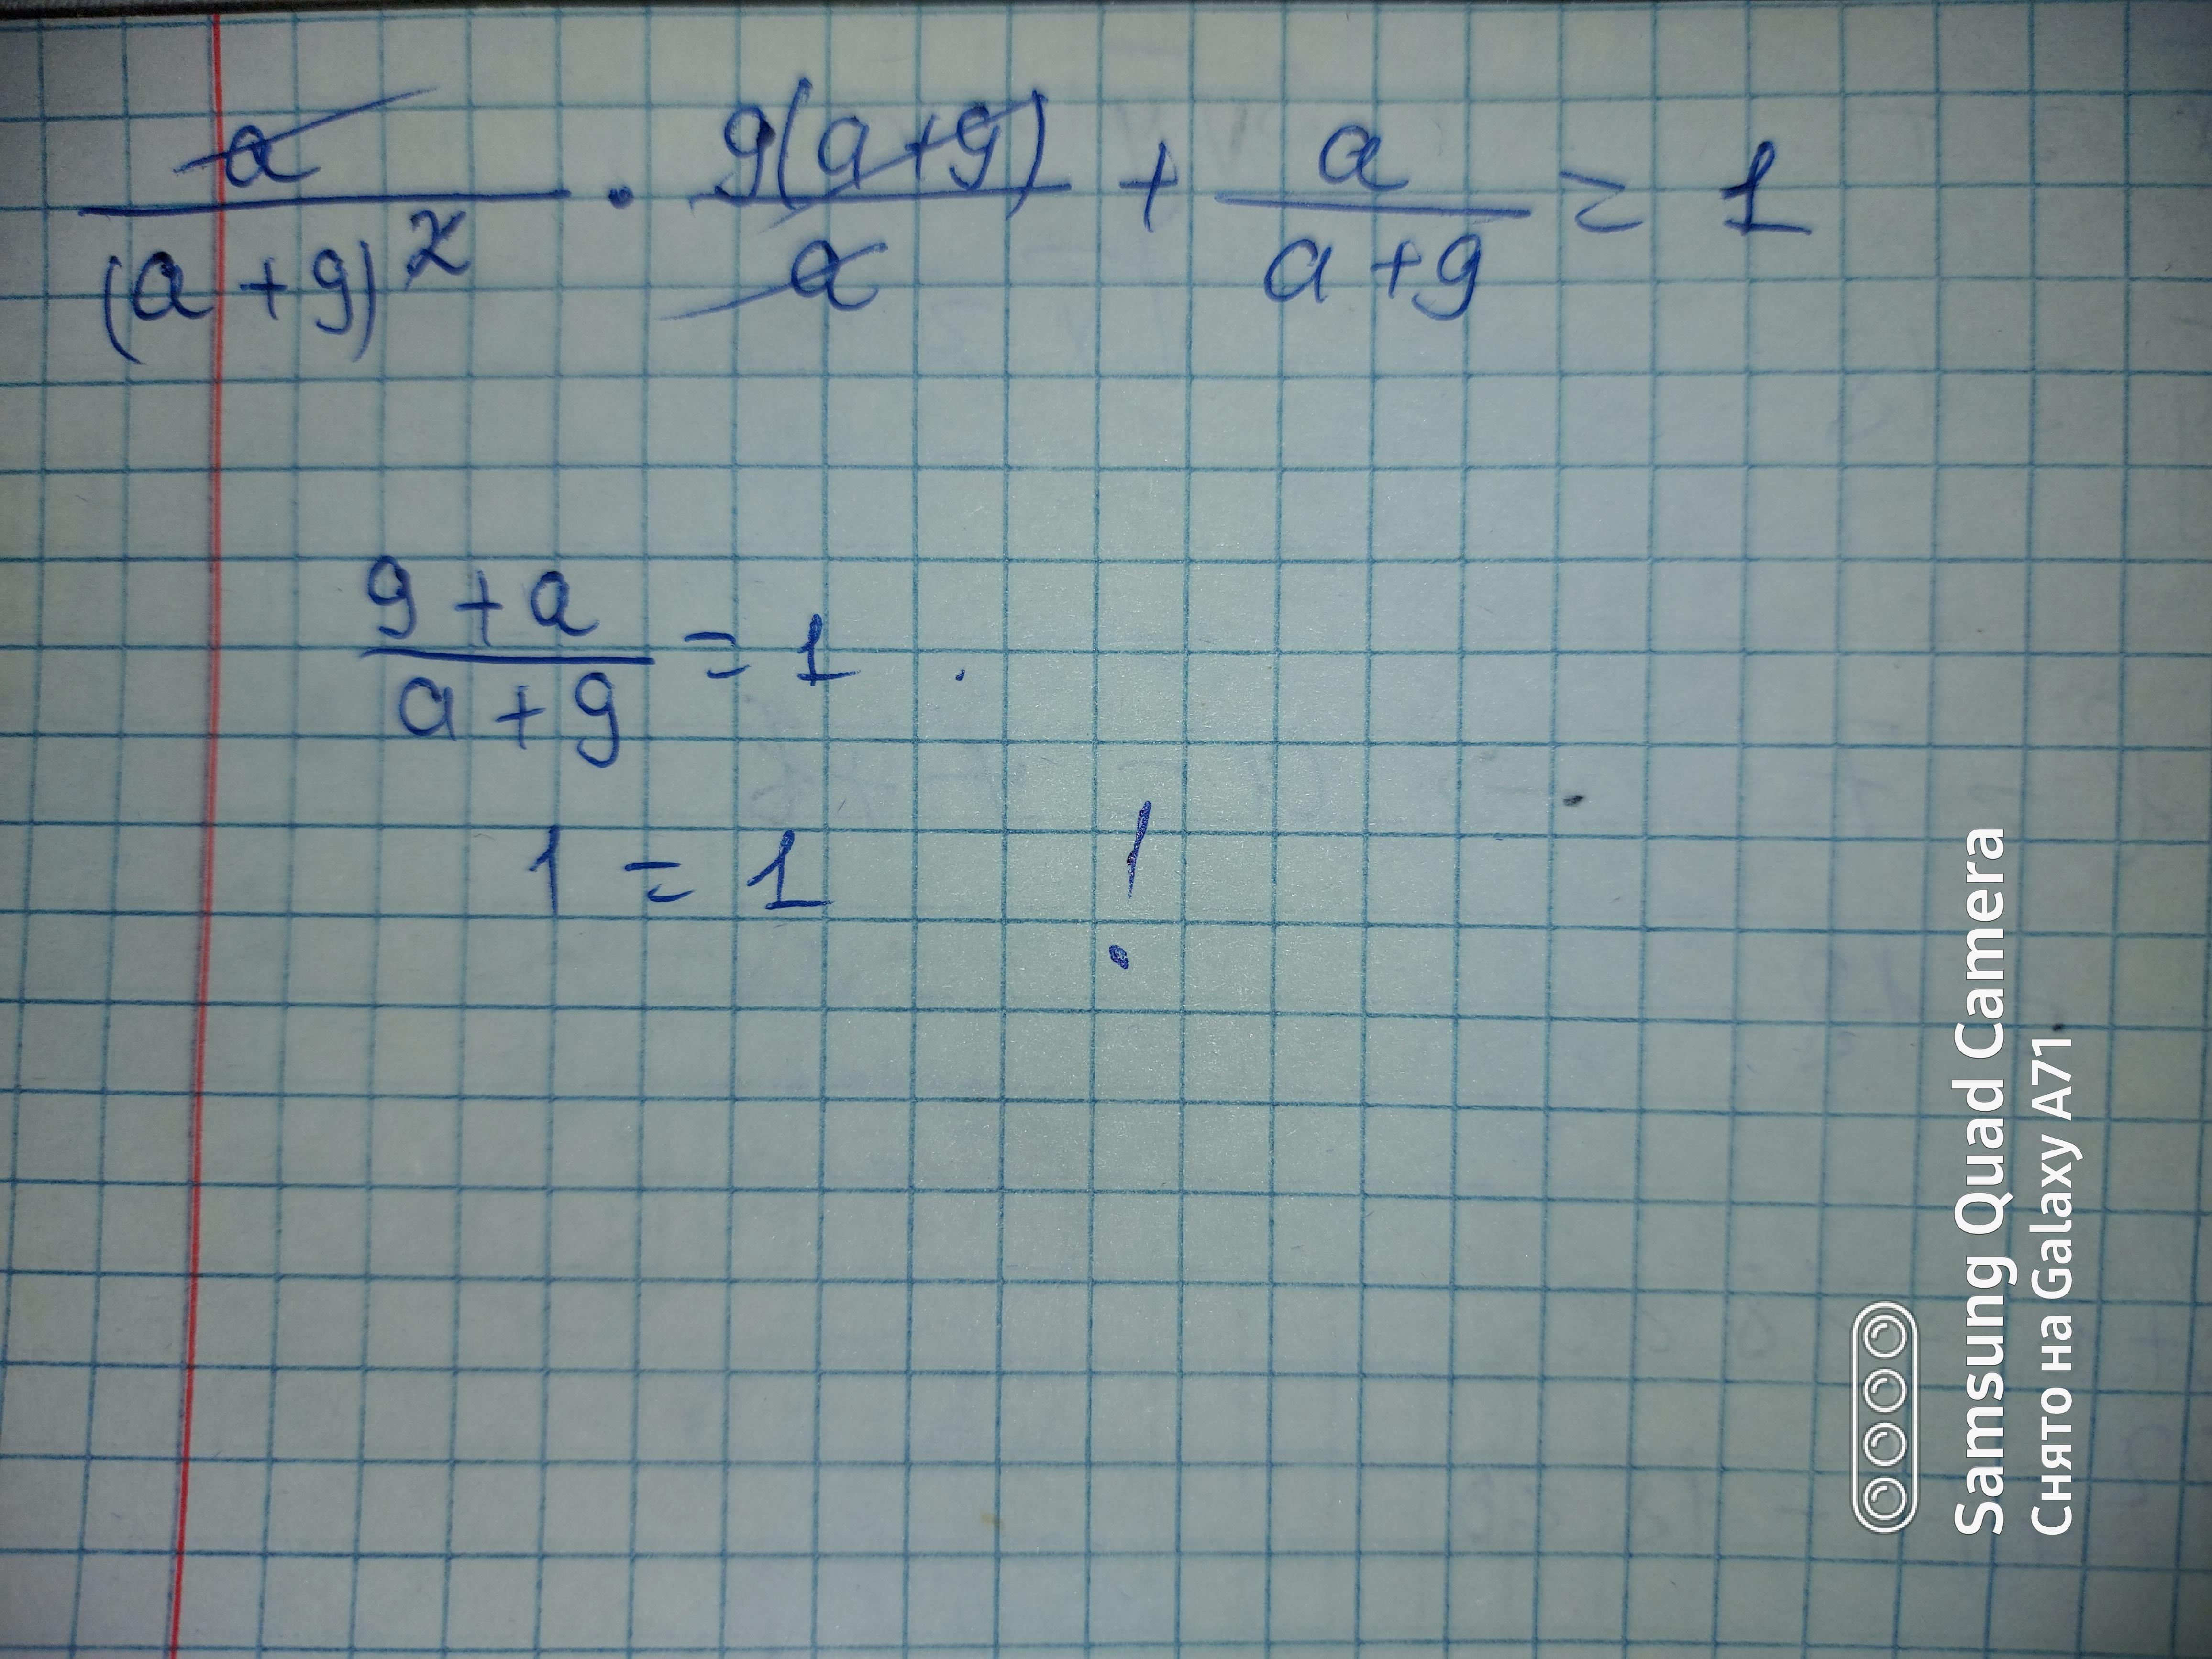 a/(a+9)² · 9(a+9)/a + a/(a+9) = 1
(9+a)/(a+9) = 1
1 = 1 !
Samsung Quad Camera
Снято на Galaxy A71